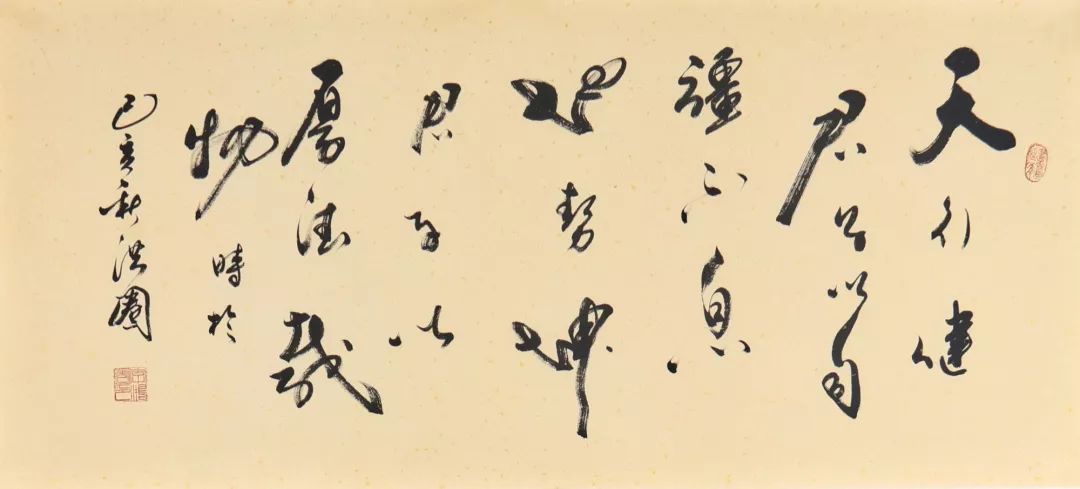 天行健
君子以自
彊不息
地勢坤
君子以
厚德載
物時於
己亥秋洪